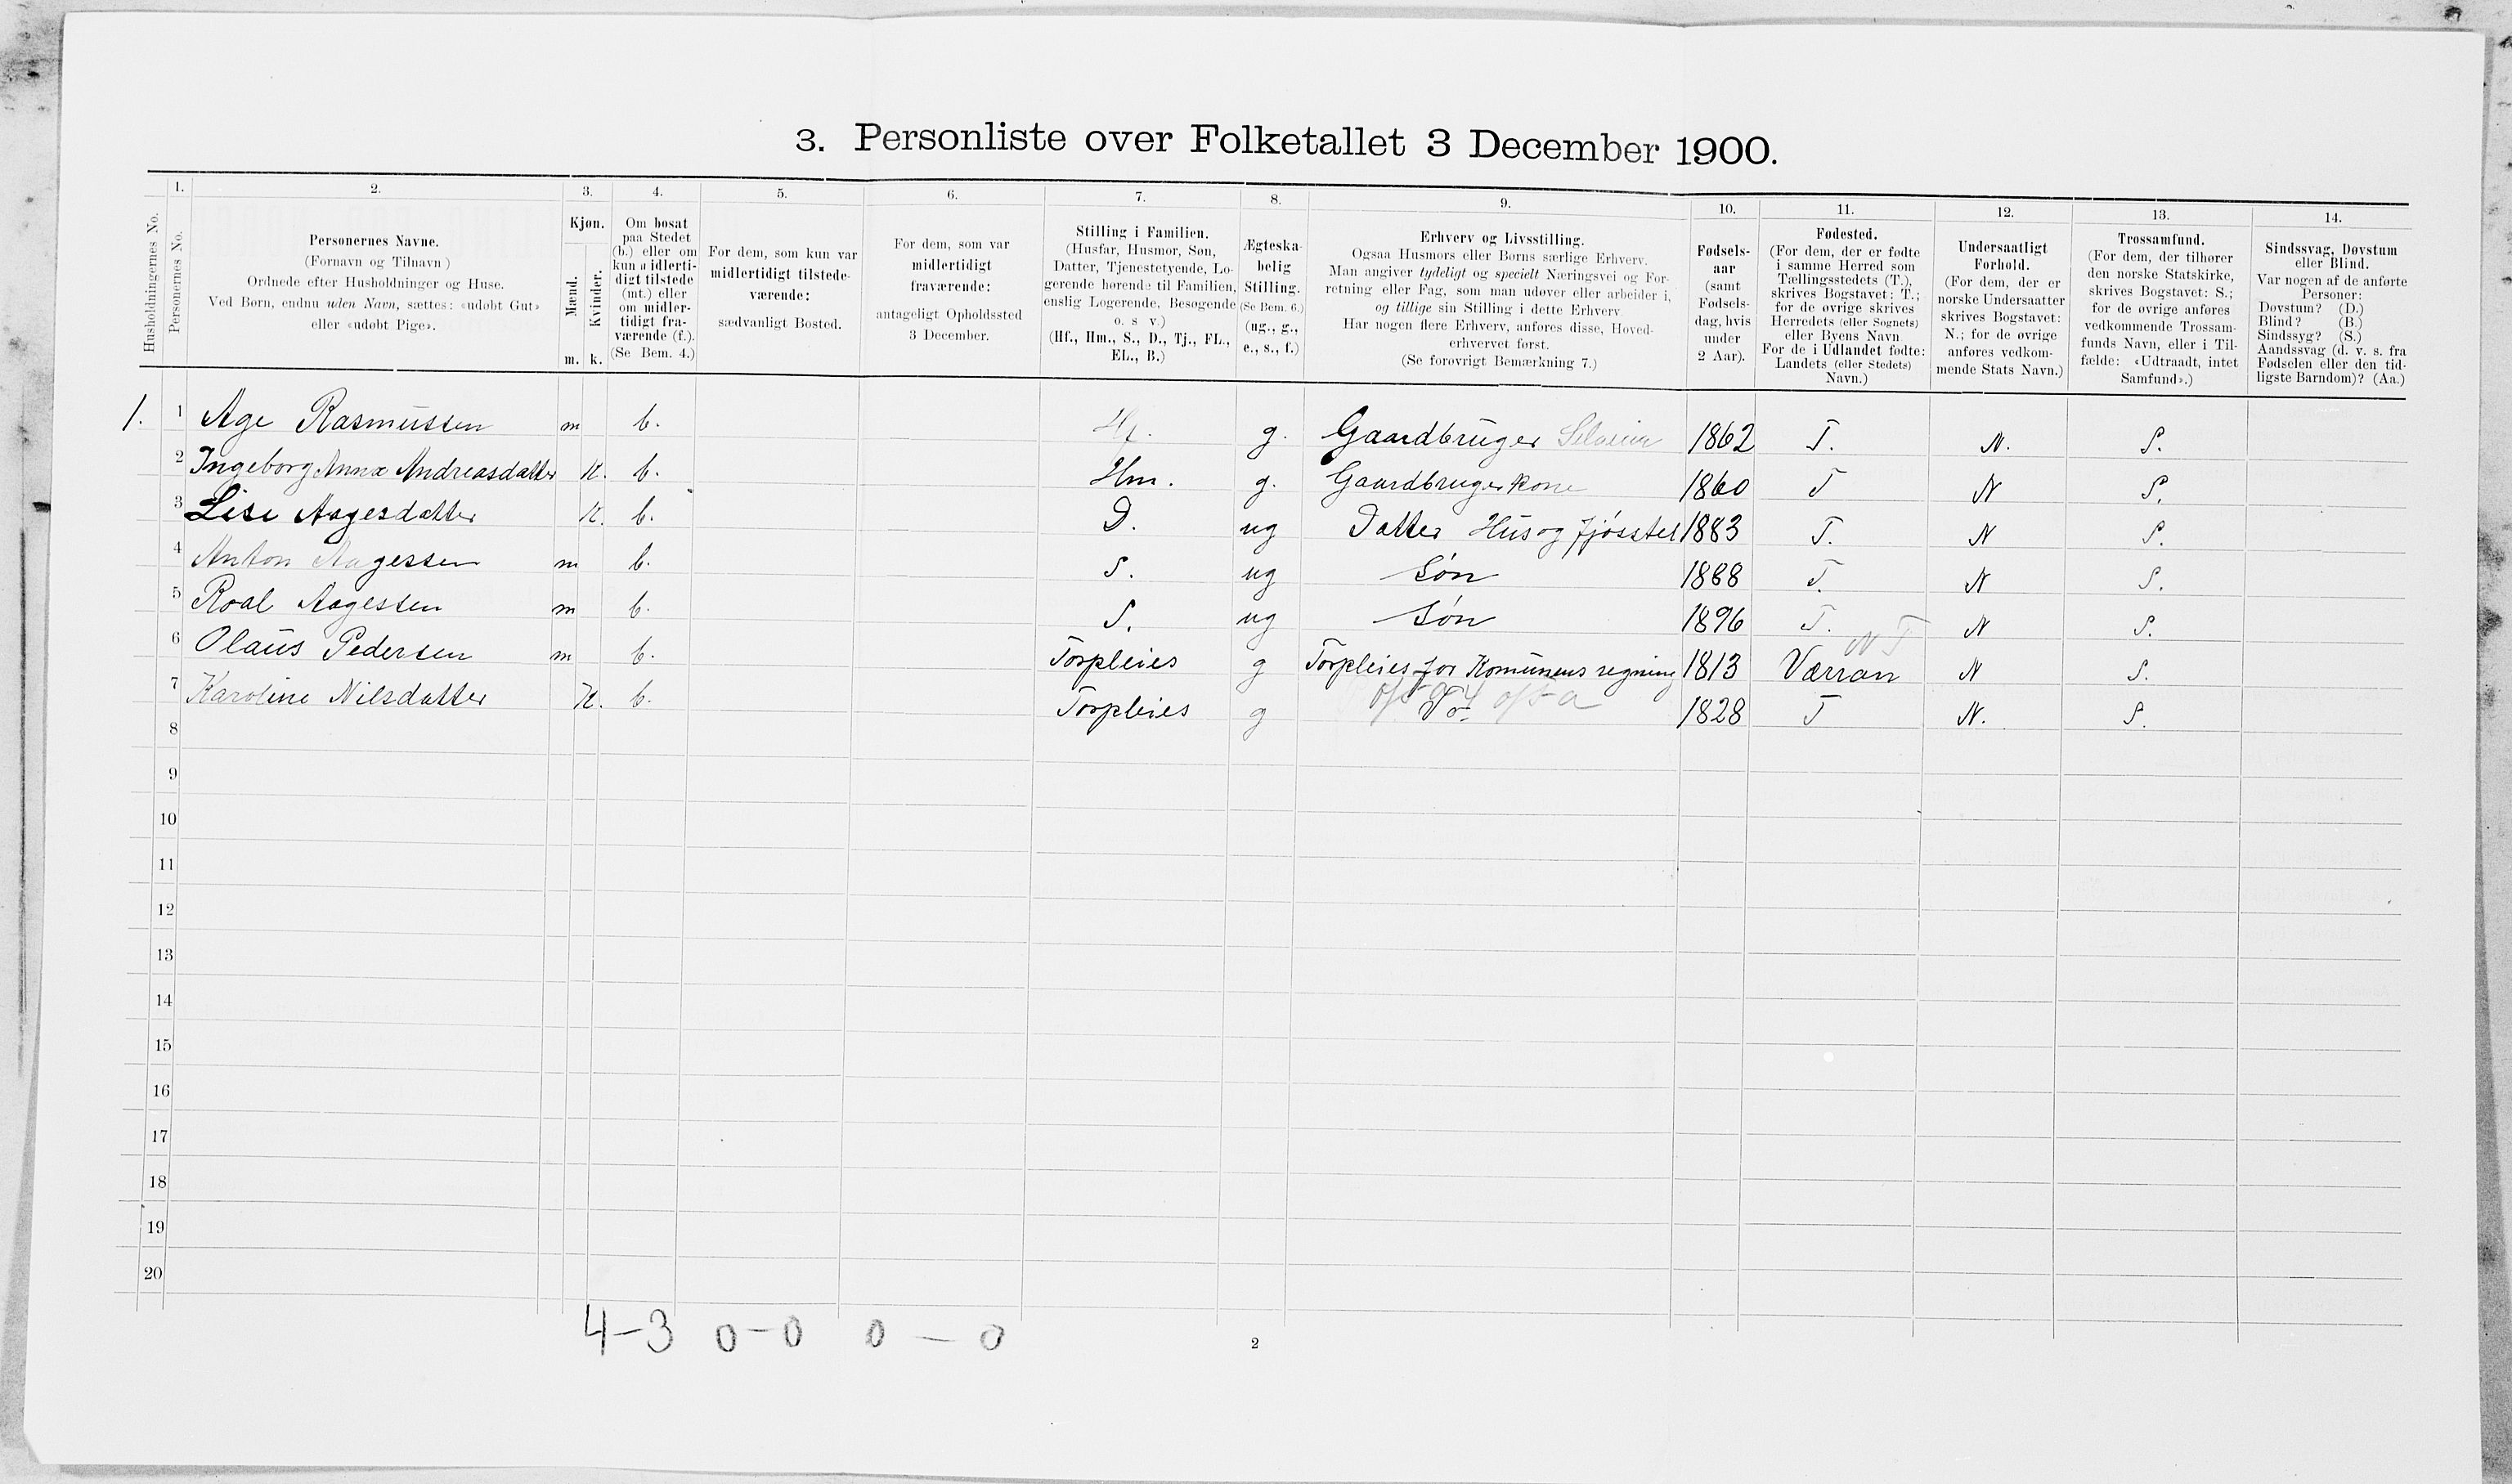 3. Personliste over Folketallet 3 December 1900.
1. 2. 3. 4. 5. 6. 7. 8. 9. 10. 11. 12. 13. 14.
Husholdningernes No.
Personernes No.
Personernes Navne.
(Fornavn og Tilnavn)
Ordnede efter Husholdninger og Huse.
Ved Børn, endnu uden Navn, sættes: «udøbt Gut»
eller «udøbt Pige».
Kjøn.
Mænd.
Kvinder.
m. k.
Om bosat
paa Stedet
(b.) eller om
kun midlerti-
digt tilstede
(mt.) eller
om midler-
tidigt fra-
værende (f.).
(Se Bem. 4.)
For dem, som kun var
midlertidigt tilstede-
værende:
sædvanligt Bosted.
For dem, som var
midlertidigt
fraværende:
antageligt Opholdssted
3 December.
Stilling i Familien.
(Husfar, Husmor, Søn,
Datter, Tjenestetyende, Lo-
gerende hørende til Familien,
enslig Logerende, Besøgende
o. s v.)
(Hf., Hm., S., D., Tj., FL.,
EL., B.)
Ægteska-
belig
Stilling.
(Se Bem. 6.)
(ug., g.,
e., s., f.)
Erhverv og Livsstilling.
Ogsaa Husmors eller Børns særlige Erhverv.
Man angiver tydeligt og specielt Næringsvei og For-
retning eller Fag, som man udøver eller arbeider i,
og tillige sin Stilling i dette Erhverv.
Har nogen flere Erhverv, anføres disse, Hoved-
erhvervet først.
(Se forøvrigt Bemærkning 7.)
Fødsels-
aar
(samt
Fødsels-
dag, hvis
under
2 Aar).
Fødested.
(For dem, der er fødte
i samme Herred som
Tællingsstedets (T.),
skrives Bogstavet: T.;
for de øvrige skrives
Herredets (eller Sognets)
eller Byens Navn
For de i Udlandet fødte:
Landets (eller Stedets)
Navn.)
Undersaatligt
Forhold.
(For dem, der er
norske Undersaatter
skrives Bogstavet:
N.; for de øvrige
anføres vedkom-
mende Stats Navn.)
Trossamfund.
(For dem, der tilhører
den norske Statskirke,
skrives Bogstavet: S.;
for de øvrige anføres
vedkommende Trossam-
funds Navn, eller i Til-
fælde: «Udtraadt, intet
Samfund».)
Sindssvag, Døvstum
eller Blind.
Var nogen af de anførte
Personer:
Døvstum? (D.)
Blind? (B.)
Sindssyg? (S.)
Aandssvag (d. v. s. fra
Fødselen eller den tid-
ligste Barndom)? (Aa.)
1. 1 Age Rasmussen m b. Hf. g. Gaardbruger Selveier 1862 T. N. S.
2 Ingeborg Anna Andreasdatter K. b. Hm. g. Gaardbrugerkone 1860 T N S.
3 Lise Aagesdatter K. b. D. ug Datter Hus og fjøsstel 1883 T. N S.
4 Anton Aagessen m b. S. ug Søn 1888 T. N S.
5 Roal Aagessen m b. S. ug Søn 1896 T. N S.
N T
6 Olaus Pedersen m b. Forpleies g Forpleies for Komunens regning 1813 Værran N S.
7 Karoline Nilsdatter K. b. Forpleies g Do 1828 T N. S.
8
9
10
11
12
13
14
15
16
17
18
19
20
4-3 0-0 0-0
2